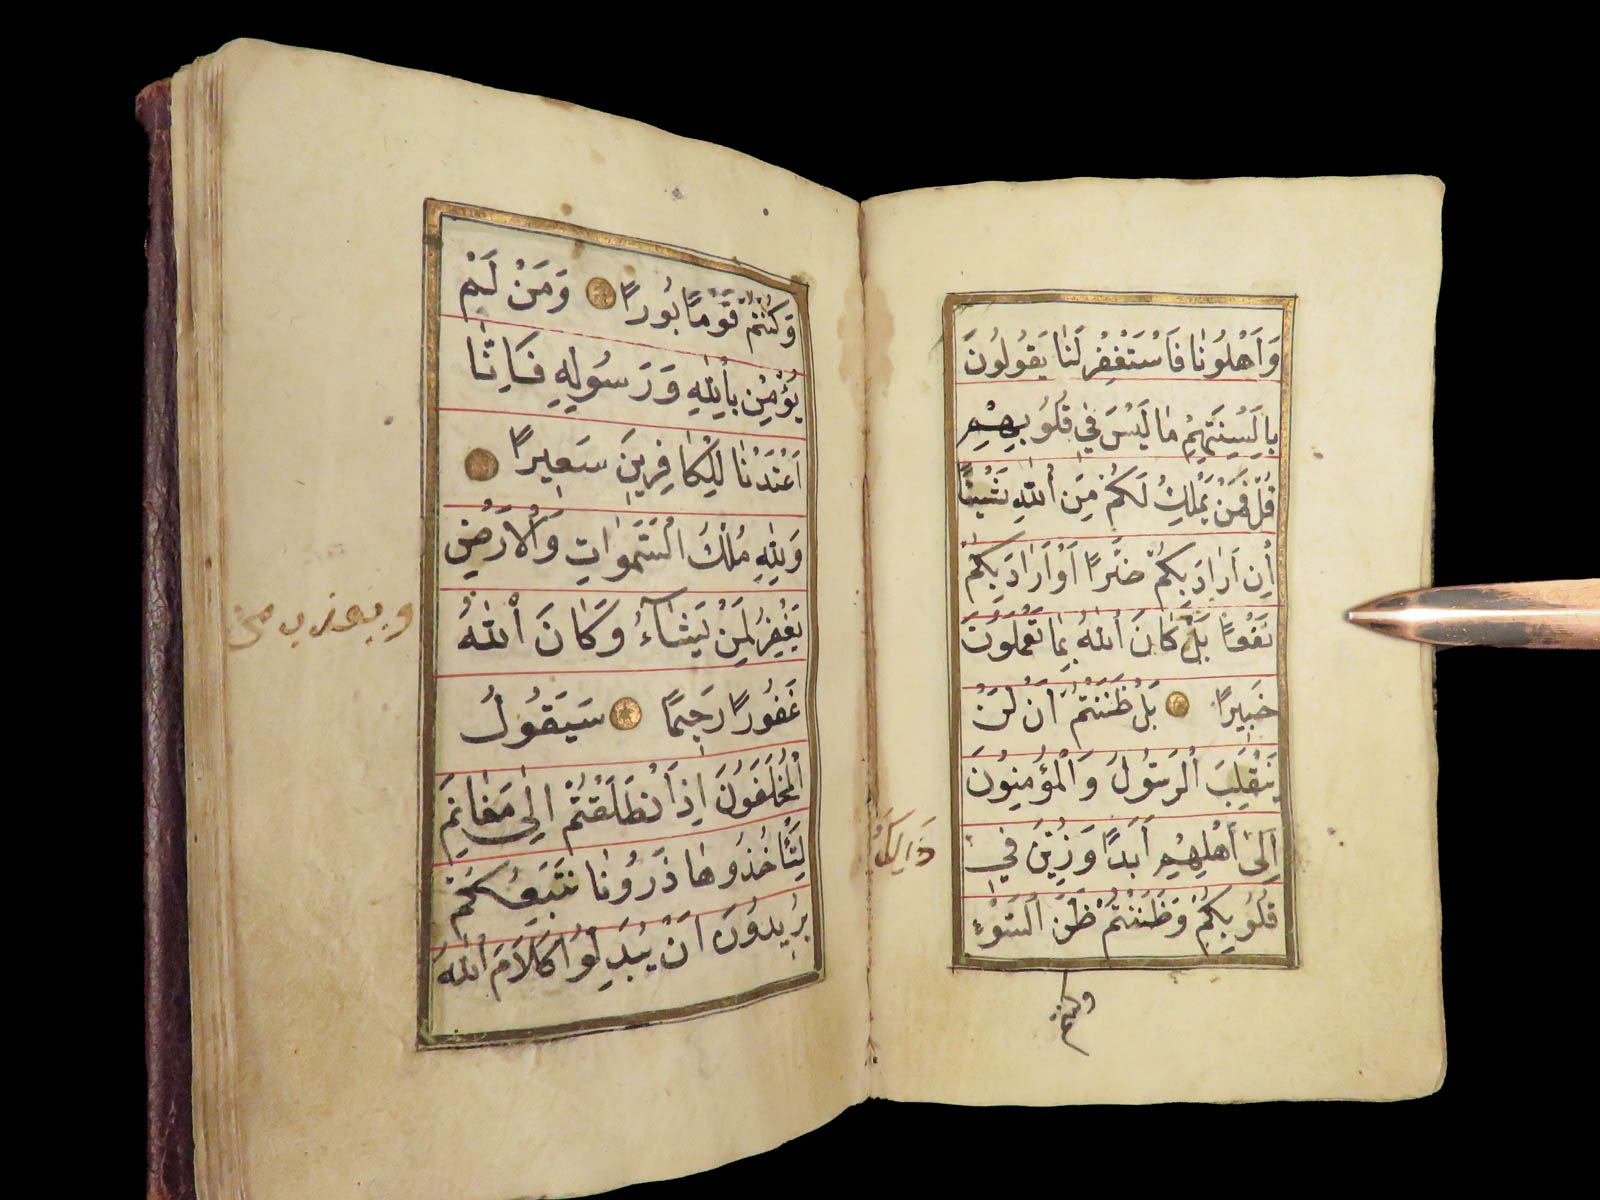 وَاَهْلُونَا فَاسْتَغْفِرْ لَنَا يَقُولُونَ
بِاَلْسِنَتِهِمْ مَا لَيْسَ فِي قُلُوبِهِمْ
قُلْ فَمَنْ يَمْلِكُ لَكُمْ مِنَ اللّٰهِ شَيْئًا
اِنْ اَرَادَ بِكُمْ ضَرًّا اَوْ اَرَادَ بِكُمْ
نَفْعًا بَلْ كَانَ اللّٰهُ بِمَا تَعْمَلُونَ
خَبِيرًا بَلْ ظَنَنْتُمْ اَنْ لَنْ
يَنْقَلِبَ الرَّسُولُ وَالْمُؤْمِنُونَ
اِلٰى اَهْلِيهِمْ اَبَدًا وَزُيِّنَ فِي
ذَالِكَ
قُلُوبِكُمْ وَظَنَنْتُمْ ظَنَّ السَّوْءِ
وكنتم
وَكُنْتُمْ قَوْمًا بُورًا وَمَنْ لَمْ
يُؤْمِنْ بِاللّٰهِ وَرَسُولِهِ فَاِنَّا
اَعْتَدْنَا لِلْكَافِرِينَ سَعِيرًا
وَلِلّٰهِ مُلْكُ السَّمٰوَاتِ وَالْاَرْضِ
يَغْفِرُ لِمَنْ يَشَآءُ وَكَانَ اللّٰهُ
ويعذب من
غَفُورًا رَحِيمًا سَيَقُولُ
الْمُخَلَّفُونَ اِذَا انْطَلَقْتُمْ اِلٰى مَغَانِمَ
لِتَأْخُذُوهَا ذَرُونَا نَتَّبِعْكُمْ
يُرِيدُونَ اَنْ يُبَدِّلُوا كَلَامَ اللّٰهِ